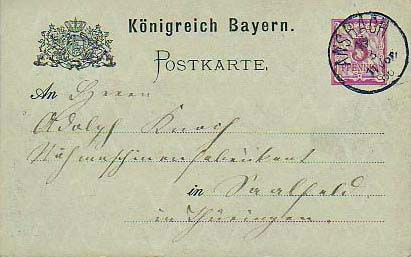 Königreich Bayern.
POSTKARTE.
ANSBACH
5
PFENNIG
An Herrn
Adolph Knoch
Nähmaschinenfabrikant
in Saalfeld
in Thüringen.